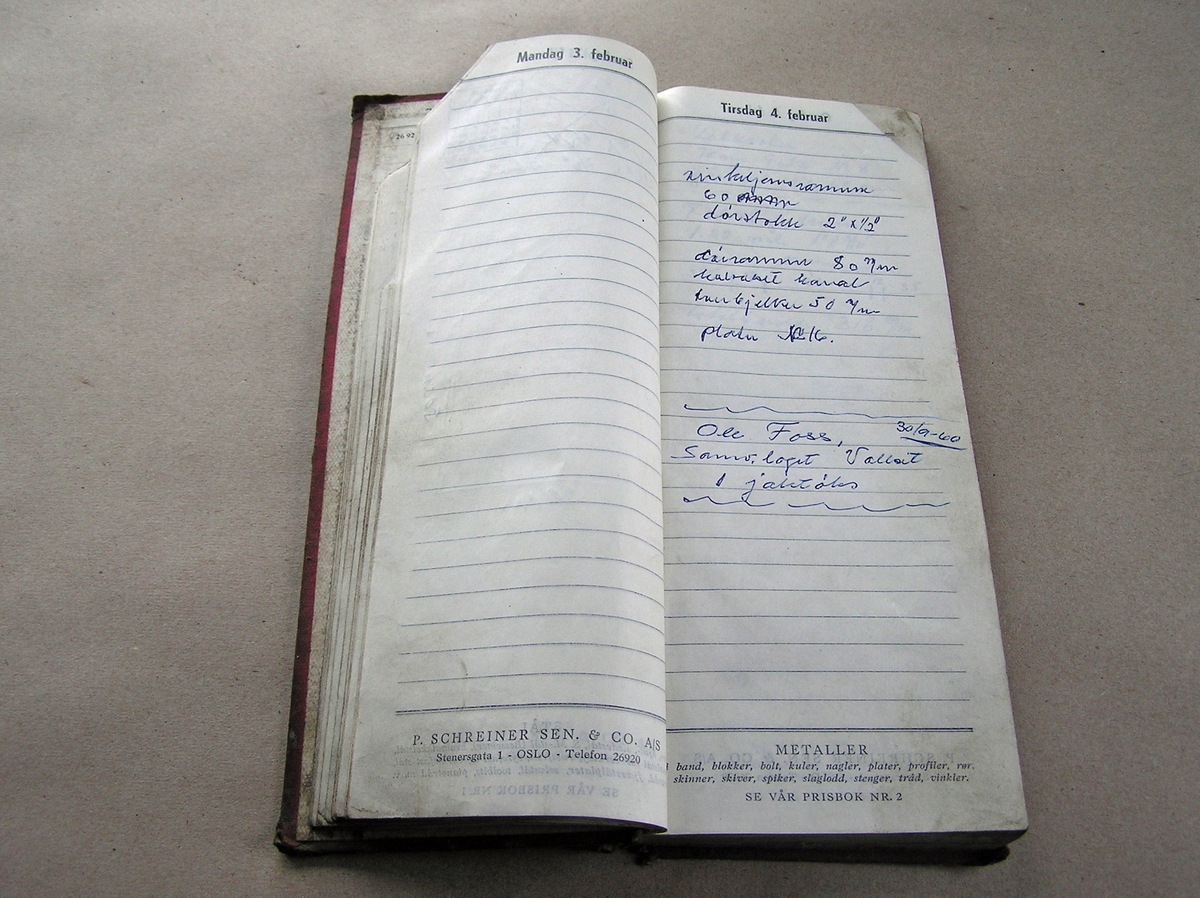 Mandag 3. februar
26 92
P. SCHREINER SEN. & CO. A/S
Stenersgata 1 - OSLO - Telefon 26920
Tirsdag 4. februar
60
dørstokk 2" x 1/2"
80 m/m
kanal
50 m/m
plate 16.
30/9-60
Ole Foss,
Samv. laget Vallset
1 jaktøks
METALLER
band, blokker, bolt, kuler, nagler, plater, profiler, rør,
skinner, skiver, spiker, slaglodd, stenger, tråd, vinkler.
SE VÅR PRISBOK NR. 2